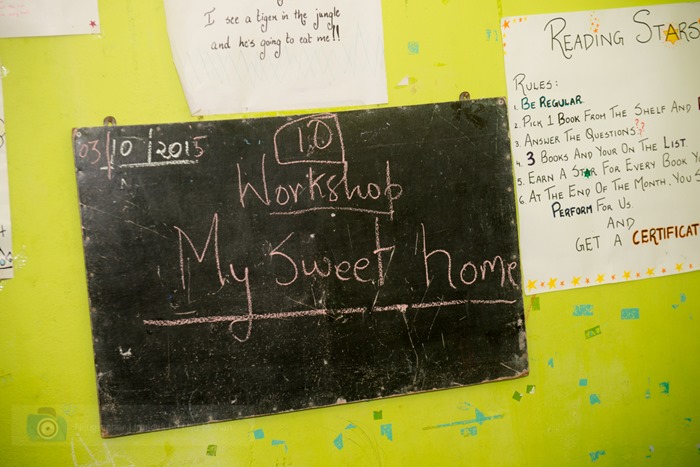 I see a tiger in the jungle
and he's going to eat me!!
03/10/2015
10
Workshop
My Sweet home
READING STARS
RULES:
1. BE REGULAR.
2. PICK 1 BOOK FROM THE SHELF AND
3. ANSWER THE QUESTIONS??
4. 3 BOOKS AND YOUR ON THE LIST.
5. EARN A STAR FOR EVERY BOOK
6. AT THE END OF THE MONTH, YOU
PERFORM FOR US.
AND
GET A CERTIFICAT